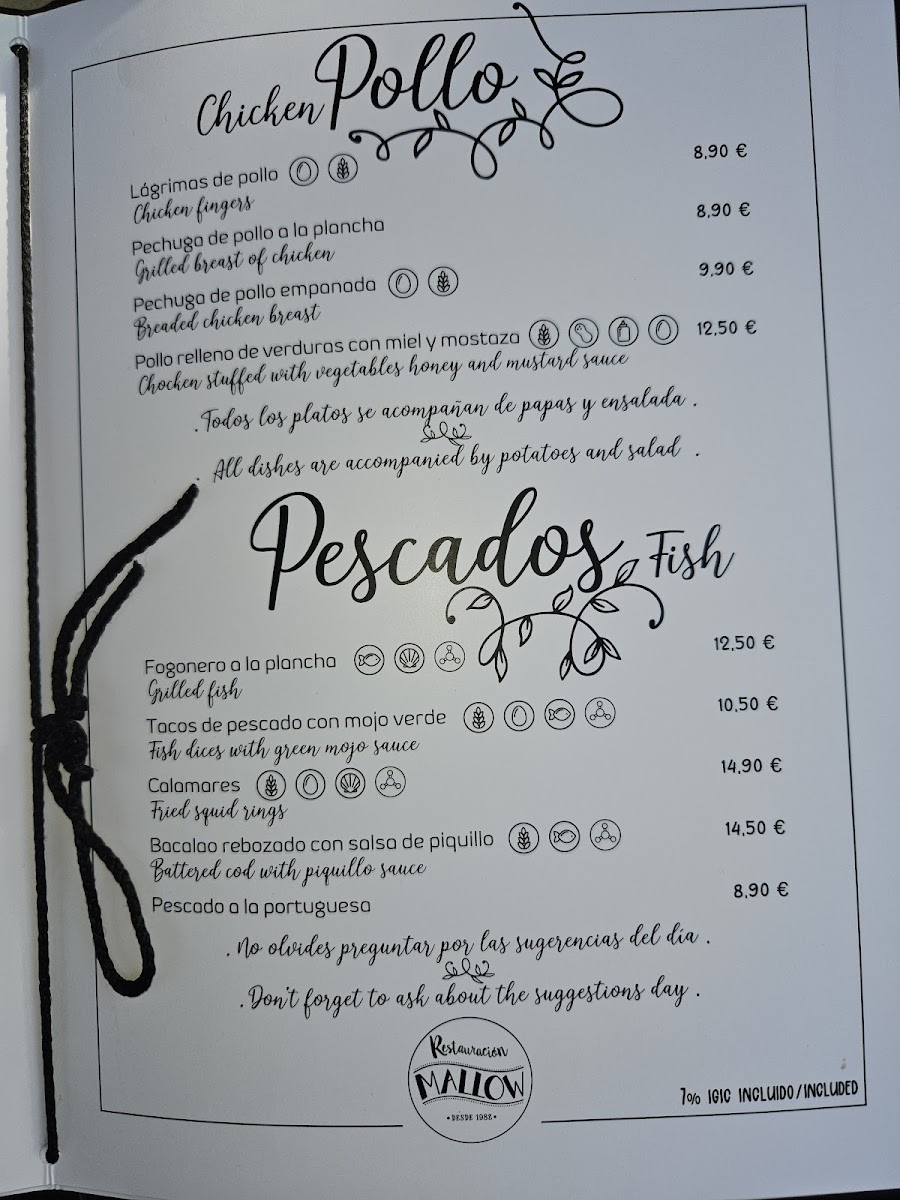 Chicken Pollo
Lágrimas de pollo 8,90 €
Chicken fingers
Pechuga de pollo a la plancha 8,90 €
Grilled breast of chicken
Pechuga de pollo empanada 9,90 €
Breaded chicken breast
Pollo relleno de verduras con miel y mostaza 12,50 €
Chocken stuffed with vegetables honey and mustard sauce
. Todos los platos se acompañan de papas y ensalada .
. All dishes are accompanied by potatoes and salad .
Pescados Fish
Fogonero a la plancha 12,50 €
Grilled fish
Tacos de pescado con mojo verde 10,50 €
Fish dices with green mojo sauce
Calamares 14,90 €
Fried squid rings
Bacalao rebozado con salsa de piquillo 14,50 €
Battered cod with piquillo sauce
Pescado a la portuguesa 8,90 €
. No olvides preguntar por las sugerencias del día .
. Don't forget to ask about the suggestions day .
Restauración
MALLOW
• DESDE 1988 •
7% IGIC INCLUIDO/INCLUDED